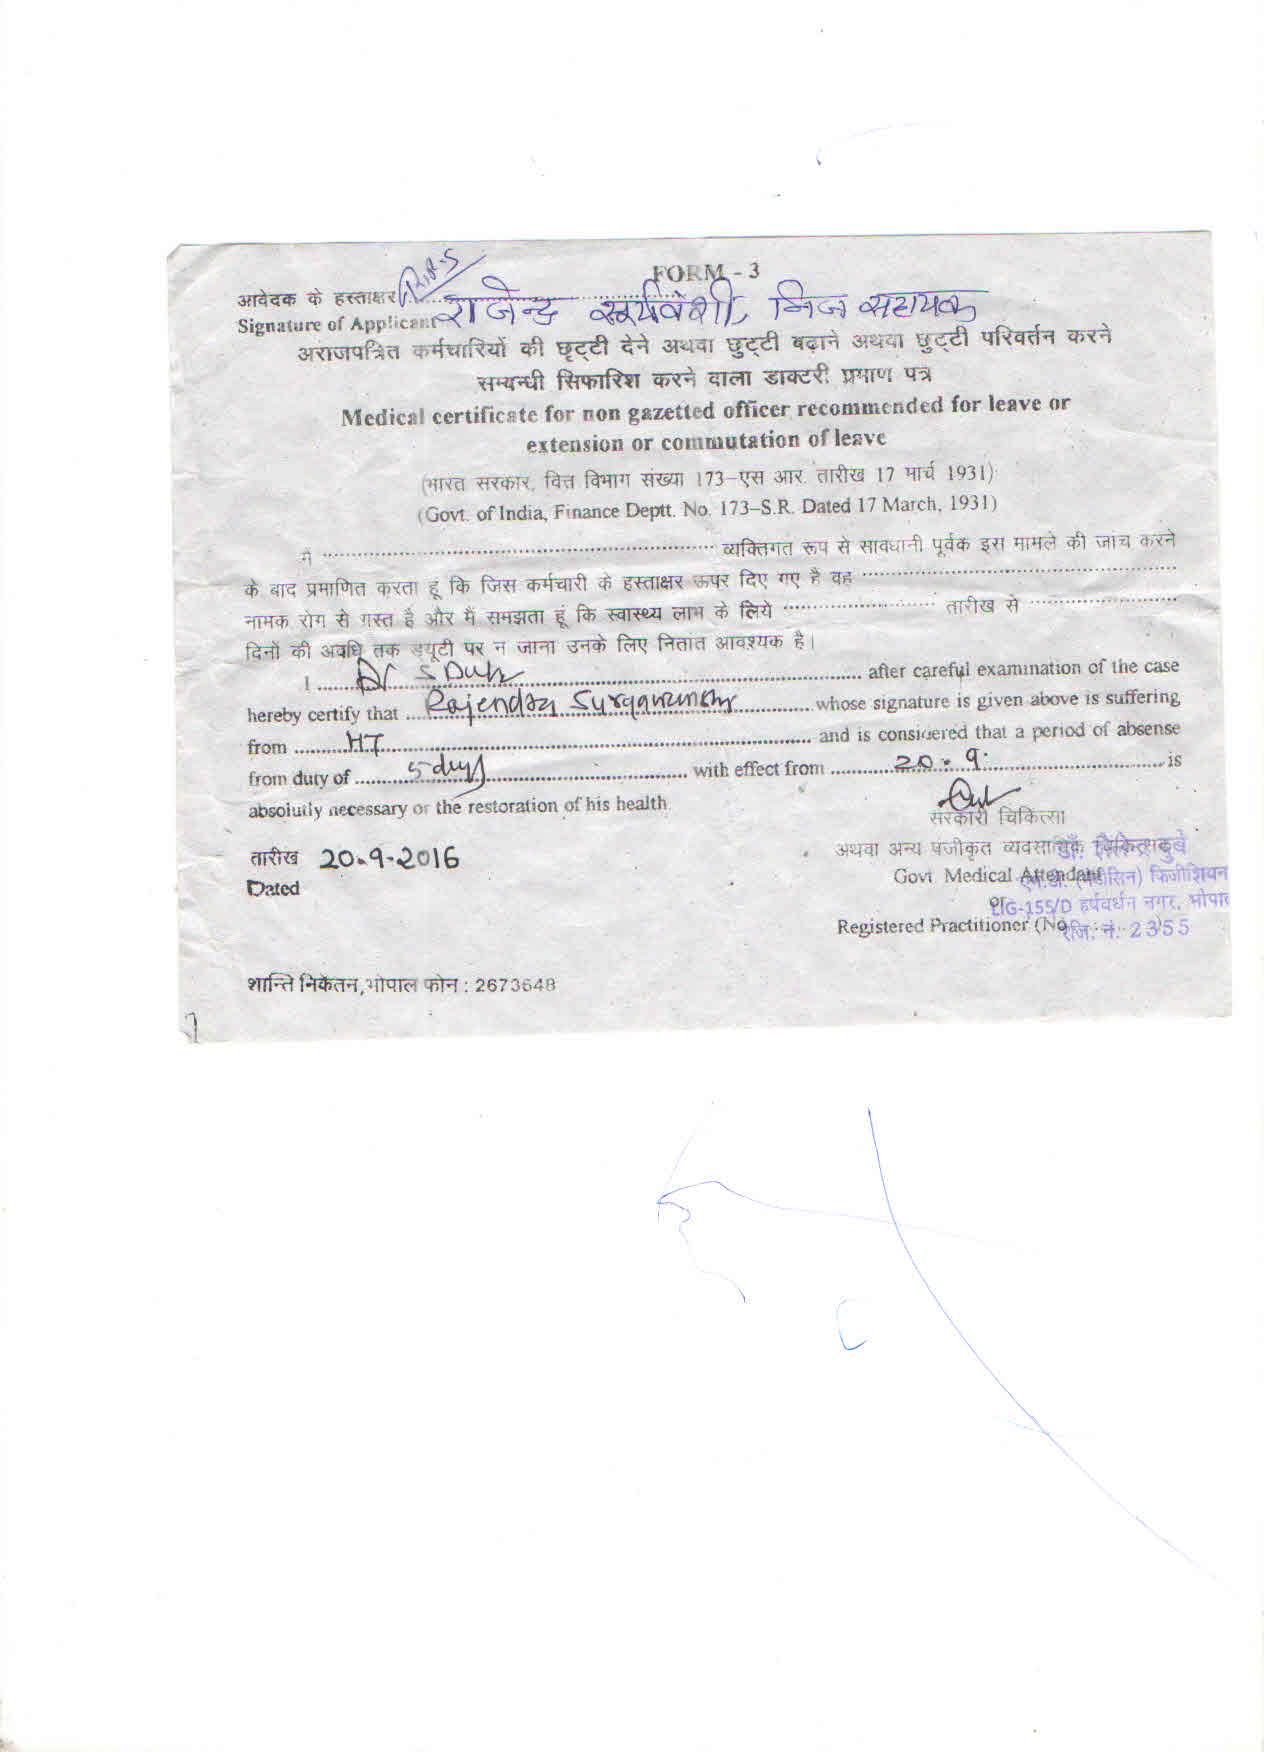 FORM - 3
आवेदक के हस्ताक्षर
Signature of Applicant राजेन्द्र सूर्यवंशी, निज सहायक
अराजपत्रित कर्मचारियों की छुट्टी देने अथवा छुट्टी बढ़ाने अथवा छुट्टी परिवर्तन करने
सम्बन्धी सिफारिश करने वाला डाक्टरी प्रमाण पत्र
Medical certificate for non gazetted officer recommended for leave or
extension or commutation of leave
(भारत सरकार, वित्त विभाग संख्या 173–एस आर. तारीख 17 मार्च 1931)
(Govt. of India, Finance Deptt. No. 173–S.R. Dated 17 March, 1931)
मैं .......... व्यक्तिगत रूप से सावधानी पूर्वक इस मामले की जांच करने
के बाद प्रमाणित करता हूं कि जिस कर्मचारी के हस्ताक्षर ऊपर दिए गए है वह ..........
नामक रोग से ग्रस्त है और मैं समझता हूं कि स्वास्थ्य लाभ के लिये .......... तारीख से ..........
दिनों की अवधि तक ड्यूटी पर न जाना उनके लिए नितांत आवश्यक है।
I ..... Dr S Dub .......... after careful examination of the case
hereby certify that ..... Rajendra Suryawanshi .......... whose signature is given above is suffering
from ..... HT .......... and is considered that a period of absense
from duty of ..... 5 days .......... with effect from ..... 20.9. .......... is
absolutly necessary or the restoration of his health
सरकारी चिकित्सा
तारीख 20.9-2016
अथवा अन्य पंजीकृत व्यवसायिक चिकित्सक
Dated
Govt Medical Attendant
or
Registered Practitioner (No
(मेडीसिन) फिजीशियन
LIG-155/D हर्षवर्धन नगर, भोपाल
रजि. नं. 2355
शान्ति निकेतन, भोपाल फोन : 2673648